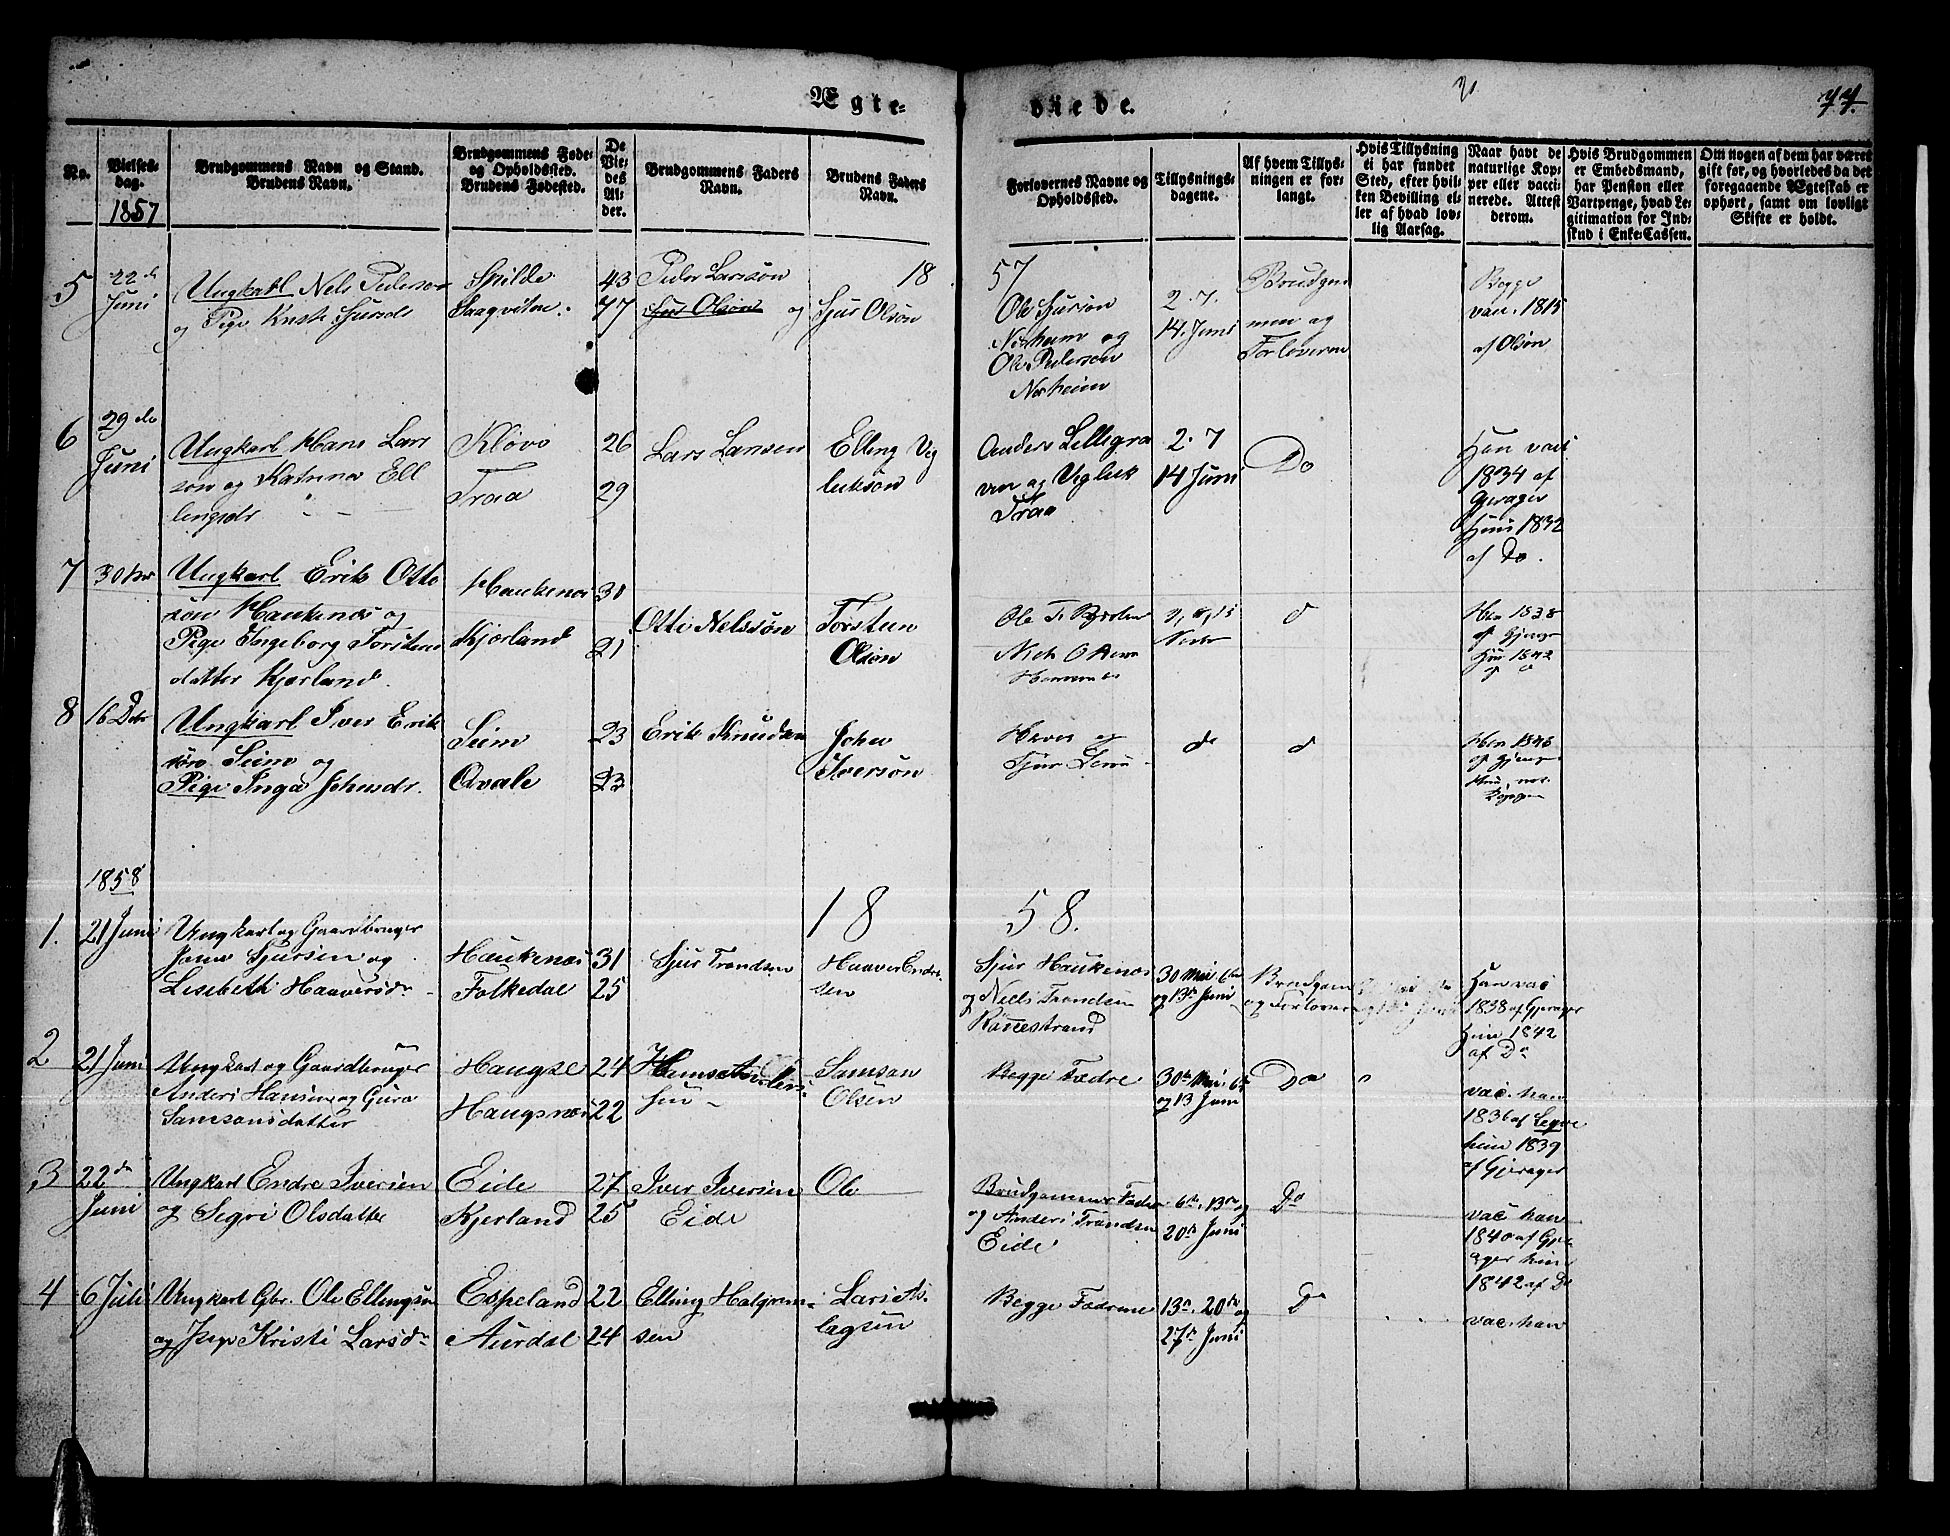 Ægte=
viede.
77.
No.
Vielses-
dag.
1857
Brudgommens Navn og Stand.
Brudens Navn.
Brudgommens Føde-
og Opholdssted.
Brudens Fødested.
De
Vie-
des
Al-
der.
Brudgommens Faders
Navn.
Brudens Faders
Navn.
Forlovernes Navne og
Opholdssted.
Tillysnings-
dagene.
Af hvem Tillys-
ningen er for-
langt.
Hvis Tillysning
ei har fundet
Sted, efter hvil-
ken Bevilling el-
ler af hvad lov-
lig Aarsag.
Naar havt de
naturlige Kop-
per eller vacci-
nerede. Attest
derom.
Hvis Brudgommen
er Embedsmand,
har Pension eller
Vartpenge, hvad Le-
gitimation for Ind-
skud i Enke-Cassen.
Om nogen af dem har været
gift før, og hvorledes da det
foregaaende Ægteskab er
ophørt, samt om lovligt
Skifte er holdt.
18
57
5
22de
Juni
Ungkarl Nels Pederson
og Pige Kristi Sjursdr
Spilde
43
47
Peder Larssøn
Sjur Olsøn og
Sjur Olsøn
Ole Sjursøn
Norheim og
Ole Pedersen
Norheim
2. 7.
14. Juni
Brudgom
men og
Forloveren
Begge
vac. 1815
af Olsøn
6
29de
Juni
Ungkarl Hans Lars
søn og Katrina El
lingsdr
Kløve
Traa
26
29
Lars Larsen
Elling Vig
leiksøn
Anders Lillegra
ven og Vigleik
Traa
2. 7
14 Juni
Do
Han vac
1834 af
Gjerager
Hun 1832
af Do.
7
30 Nov
Ungkarl Erik Otto
søn Haukenæs og
Pige Ingeborg Torstens
datter Kjærland.
Haukenæs
Kjærland
31
21
Otto Nelssøn
Torstein
Olsøn
Han 1838
af Gjerager
Hun 1842
8
16 Decbr
Ungkarl Iver Erik
søn Seim og
Pige Inga Johnsdr.
Seim
Qvale
23
23
Erik Knudsen
John
Iversøn
do
d
1858
18
58.
1.
21 Juni
Ungkarl og Gaardbruger
Jone Sjursen og
Lisebeth Haaversdr
Haukenæs
Folkedal
31
25
Sjur Trondsen
Haaver Endre
sen
Sjur Haukenæs
og Niels Trondsen
Rønnestrand
30 Mai 6te
og 13de Juni
Brudgom
og Forlover
Han vac
1838 af Gjerager
Hun 1842
af Do
2
21 Juni
Ungkarl og Gaardbruger
Anders Hansen og Guro
Samsonsdatter
Haugse
Haugsnæs
24
22
Samson
Olsen
Begge Fædre
30te Mai. 6te
og 13 Juni
Do
vac. han
1836 af Legre
hun 1839
af Gjerager
3
22de
Juni
Ungkarl Endre Iversen
og Segri Olsdatter
Eide
Kjerland
27
25
Iver Iversen
Eide
Ole
Brudgomens Fader
og Anders Trondsen
Eide
6te. 13de og
20de Juni
Do
vac han
1840 af Gjer
ager hun
1842 af Do
4
6 Juli
Ungkarl Gbr. Ole Ellingsen
og Pige Kristi Larsdr
Espeland
Aurdal
22
24
Elling Halgrim-
sen
Lars As-
lagsen
Begge Fædrene
13de. 20de og
27de Juni
Do
vac. han